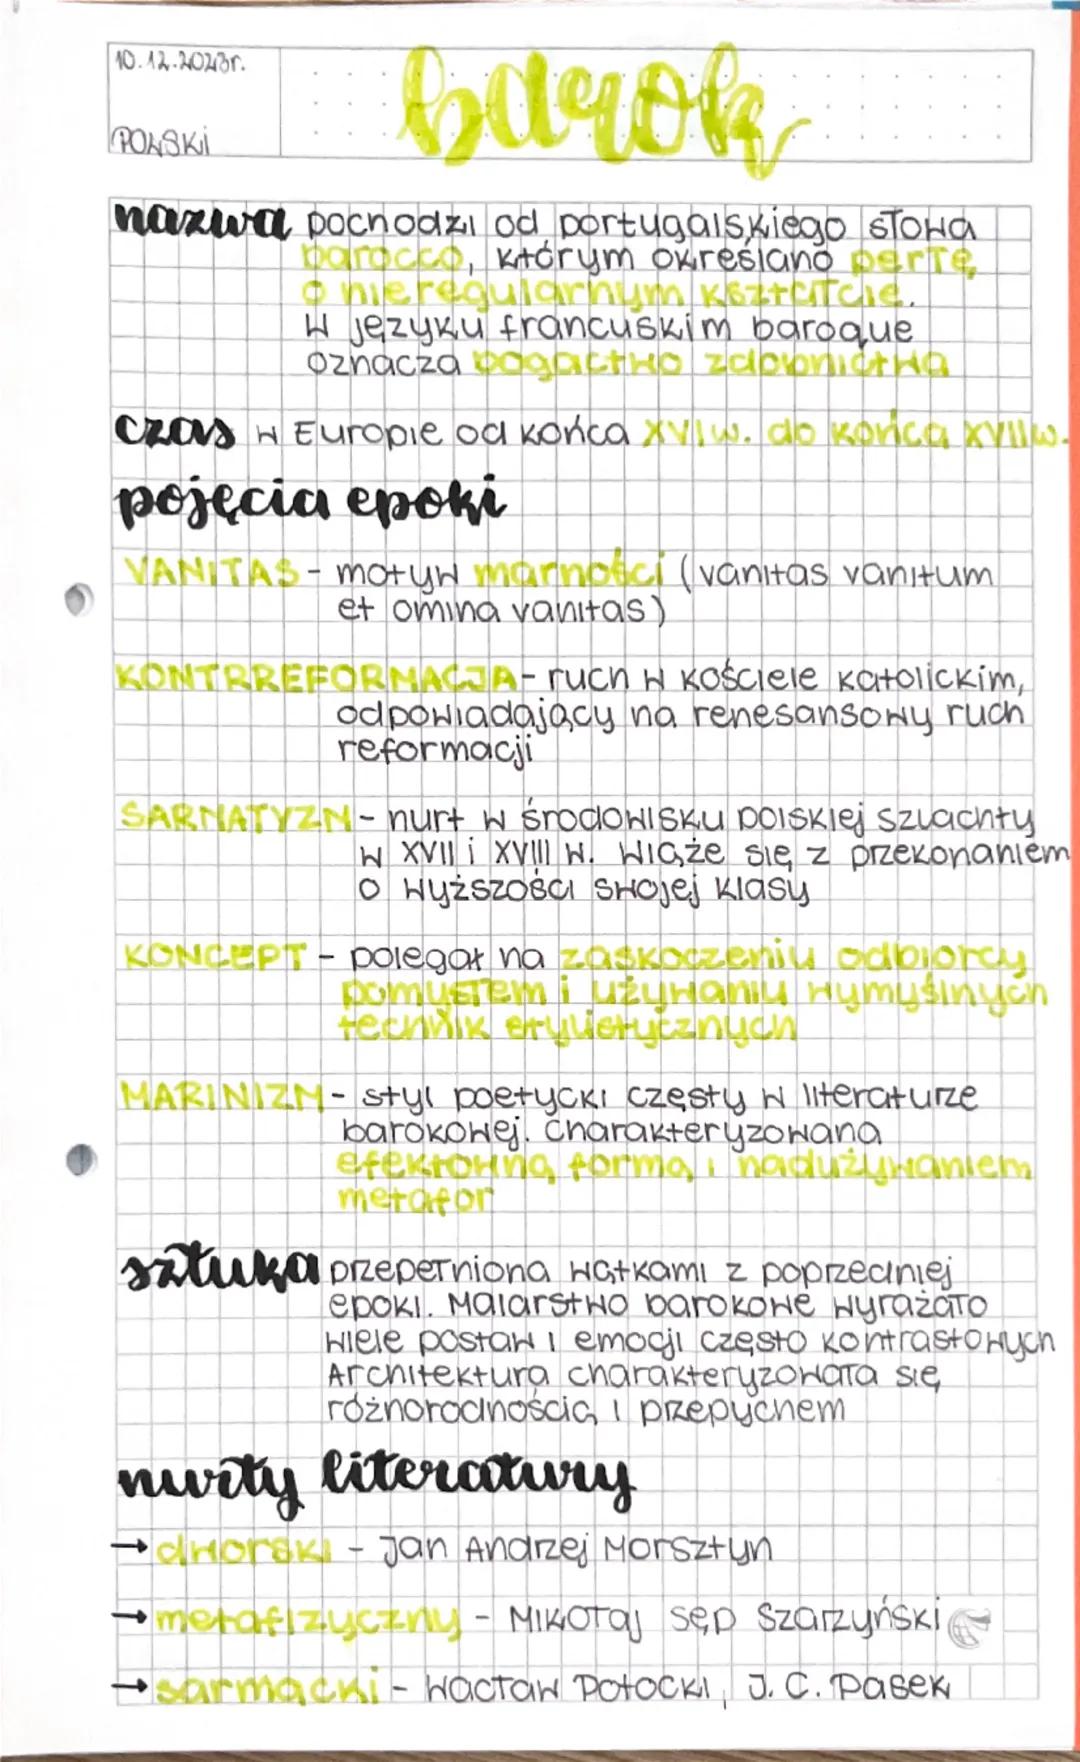 10.12.2023r.
POLSKI
barok
nazwa pochodzi od portugalskiego słowa
barocco, którym określano perłę
o nieregularnym kształcie.
W języku francuskim baroque
oznacza bogactwo zdobnictwa
czas w Europie od końca XVI w. do końca XVIII w.
pojęcia epoki
VANITAS - motyw marności (vanitas vanitum
et omina vanitas)
KONTRREFORMACJA - ruch w kościele katolickim,
odpowiadający na renesansowy ruch
reformacji
SARMATYZM - nurt w środowisku polskiej szlachty
w XVII i XVIII w. wiąże się z przekonaniem
o wyższości swojej klasy
KONCEPT - polegał na zaskoczeniu odbiorcy
pomysłem i używaniu wymyślnych
technik stylistycznych
MARINIZM - styl poetycki częsty w literaturze
barokowej. Charakteryzowana
efektowną formą i nadużywaniem
metafor
sztuka przepełniona wątkami z poprzedniej
epoki. Malarstwo barokowe wyrażało
wiele postaw i emocji często kontrastowych
Architektura charakteryzowała się
różnorodnością i przepychem
nurty literatury
→ dworski - Jan Andrzej Morsztyn
→ metafizyczny - Mikołaj Sęp Szarzyński
→ sarmacki - Wacław Potocki, J. C. Pasek